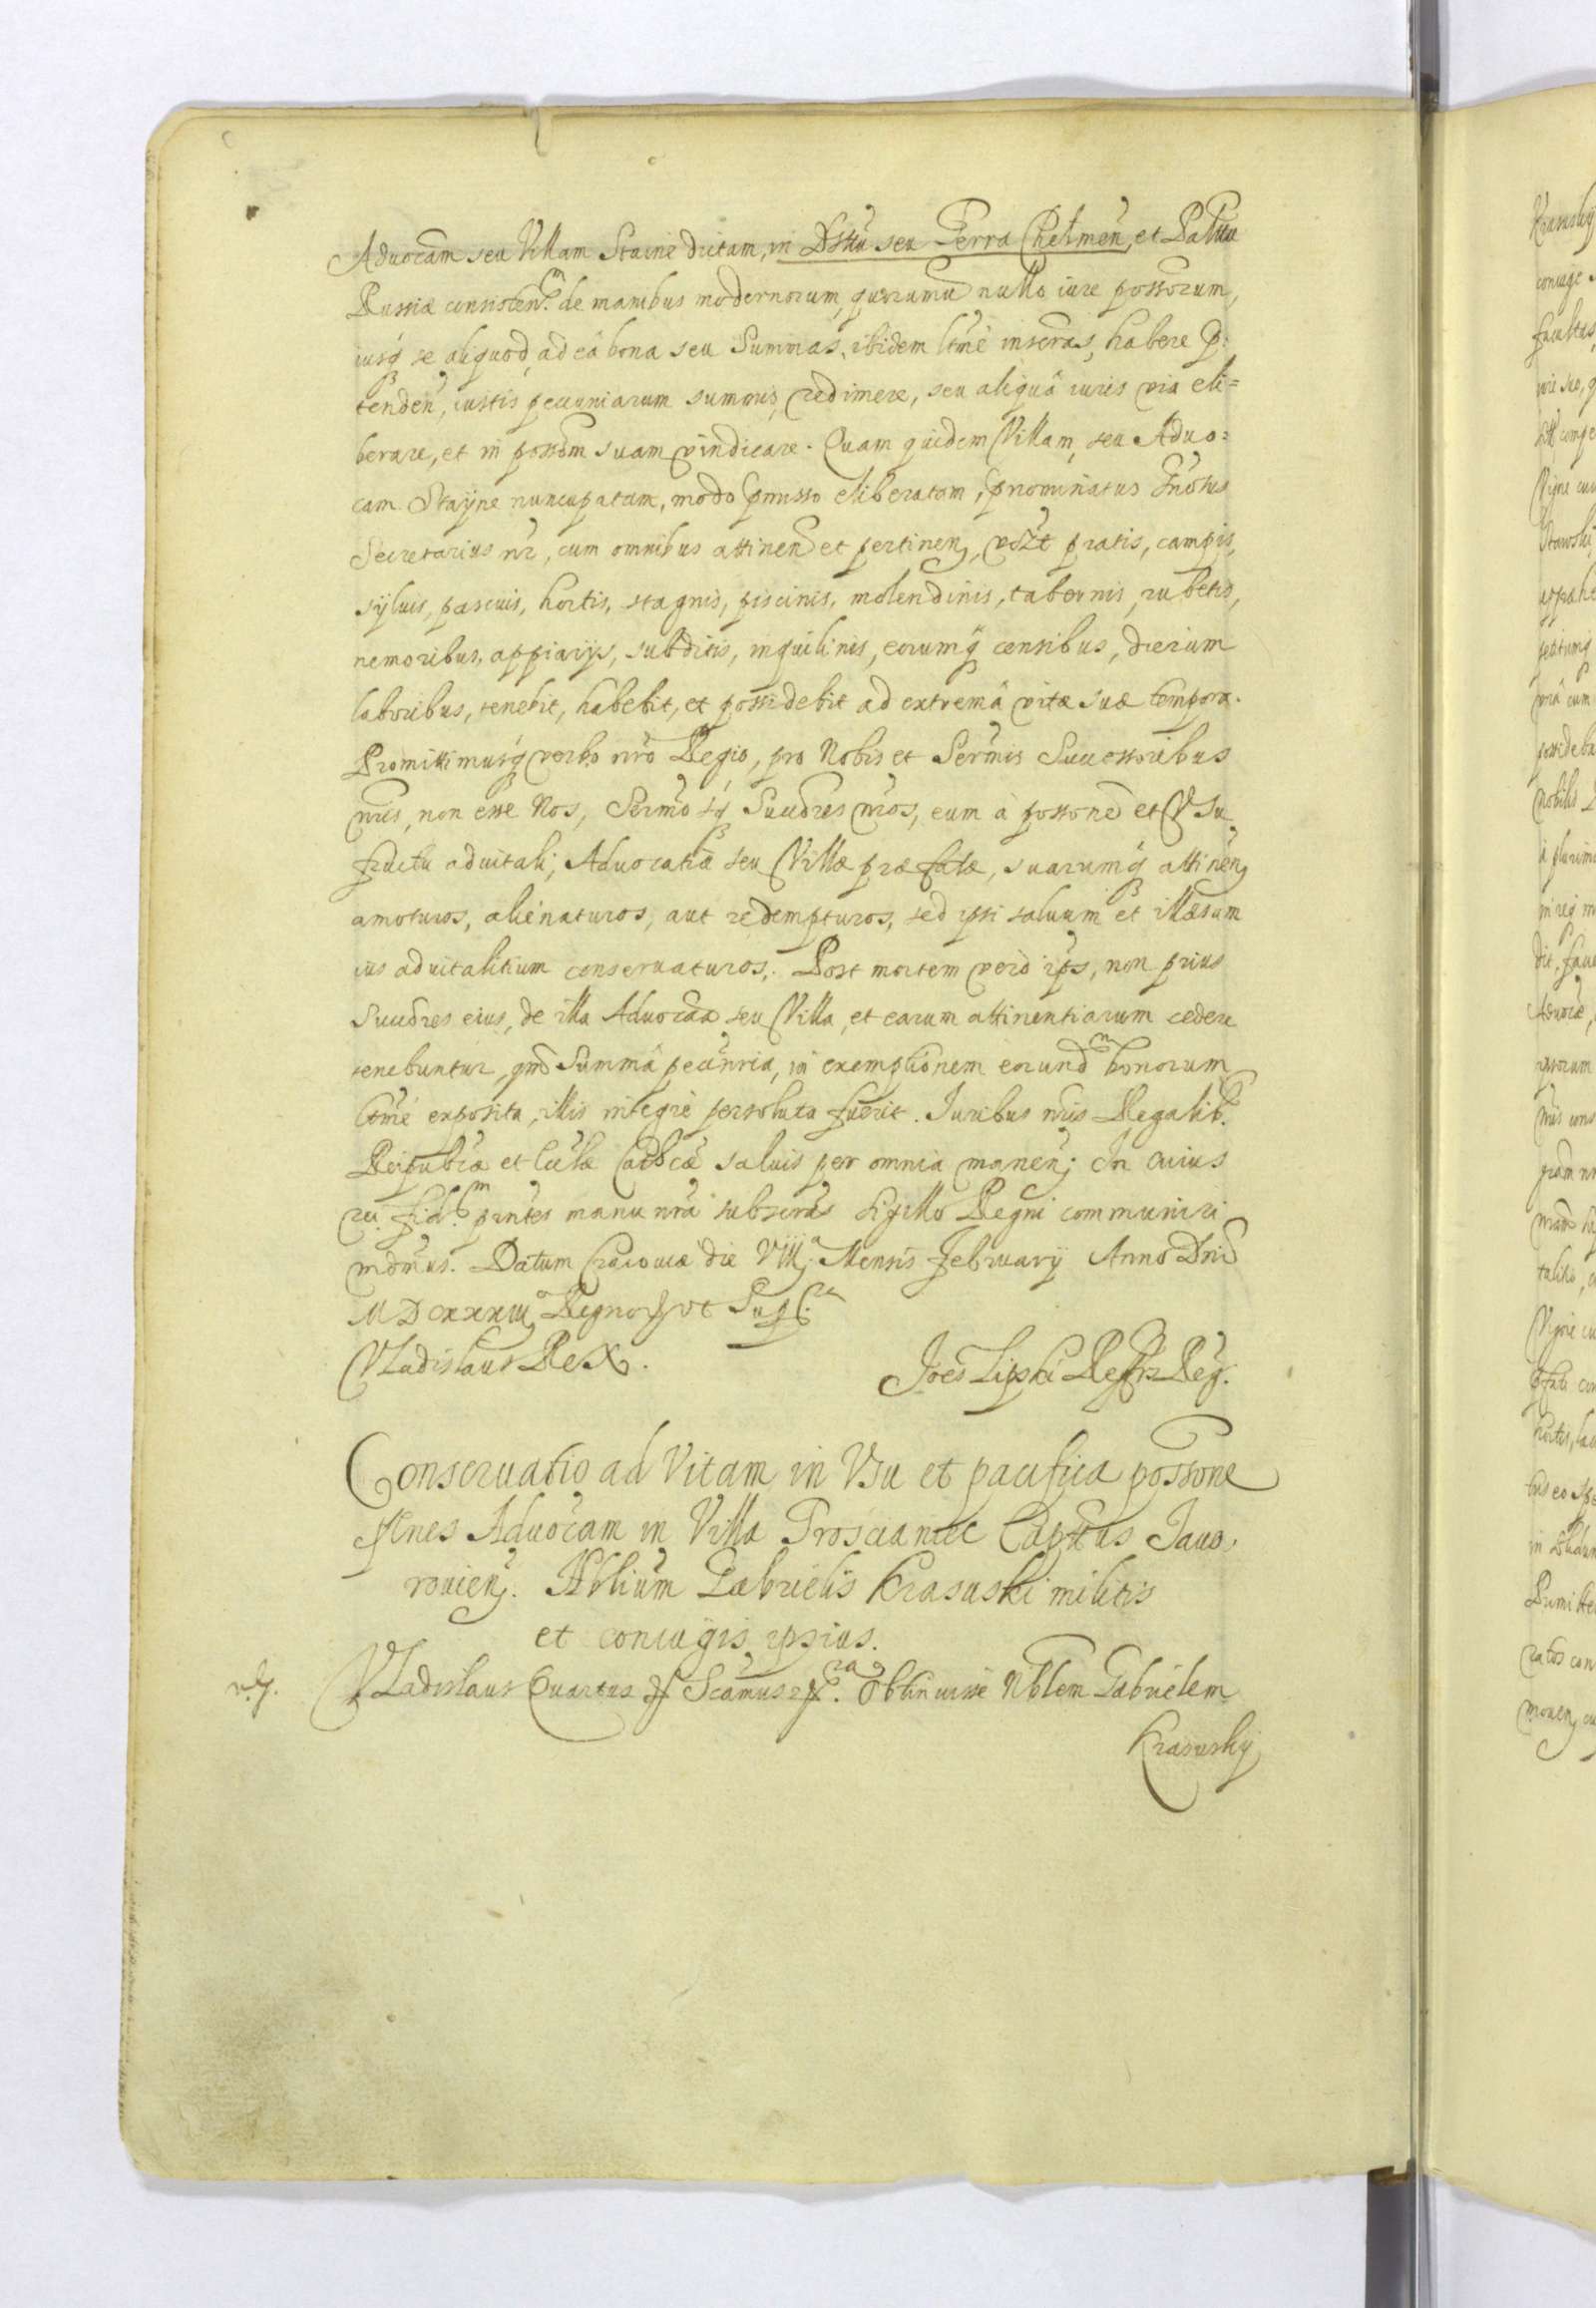 Aduocãm seu Villam Staine dictam, in Dsttu seu Terra Chelmen, et Palttu
Russiæ consisten. de manibus modernorum, quorumu nullo iure possorum,
iusq se aliquod ad ea bona seu Summas, ibidem ltme inscras, habere p:
tenden, iustis pecuniarum summis redimere, seu aliquâ iuris via eli=
berare, et in possom suam vindicare. Quam quidem Villam, seu Aduo:
cam Stayne nuncupatam, modo pmisso eliberatam, pnominatus Gnosus
Secretarius nr, cum omnibus attinen et pertinen, vdzt pratis, campis,
syluis, pascuis, hortis, stagnis, piscinis, molendinis, tabernis, rubetis,
nemoribus, appiarijs, subditis, inquilinis, eorumq censibus, dierum
laboribus, tenebit, habebit, et possidebit ad extremâ vitæ suæ tempora.
Promittimusq verbo nro Regio, pro Nobis et Sermis Successoribus
nris, non esse Nos, Sermosq Succres nros, eum à possone et Vsu
fructu aduitali, Aduocatiæ seu Villæ præfatæ, suarumq attinen
amoturos, alienaturos, aut redempturos, sed ipsi saluum et illæsum
ius aduitalitium conseruaturos. Post mortem vero ips, non prius
Succres eius, de illa Aduocaa seu Villa, et earum attinentiarum cedere
tenebuntur, qm Summâ pecunria, in exemptionem eorund bonorum
ltme exposita, illis integrè persoluta fuerit. Iuribus nris Regalib.
Reipubcæ et Ecclæ Cathcæ saluis per omnia manen. In cuius
rei fid. pntes manu nrâ subscras Sigillo Regni communiri
mdmus. Datum Cracouiæ die VIII Mensis February Anno Dni
MDCXXXIII Regnor vt Sup
Vladislaus Rex.
Joes Lipski RefRz Reg.
Conseruatio ad Vitam in Vsu et pacifica possone
Penes Aduocam in Villa Prosciance Capttus Jauo,
rouien. Nblium Gabrielis Krasuski militis
et coniugis ipsius.
Vladislaus Quartus Scamus Obtinuisse Nblem Gabrielem
Krasusky